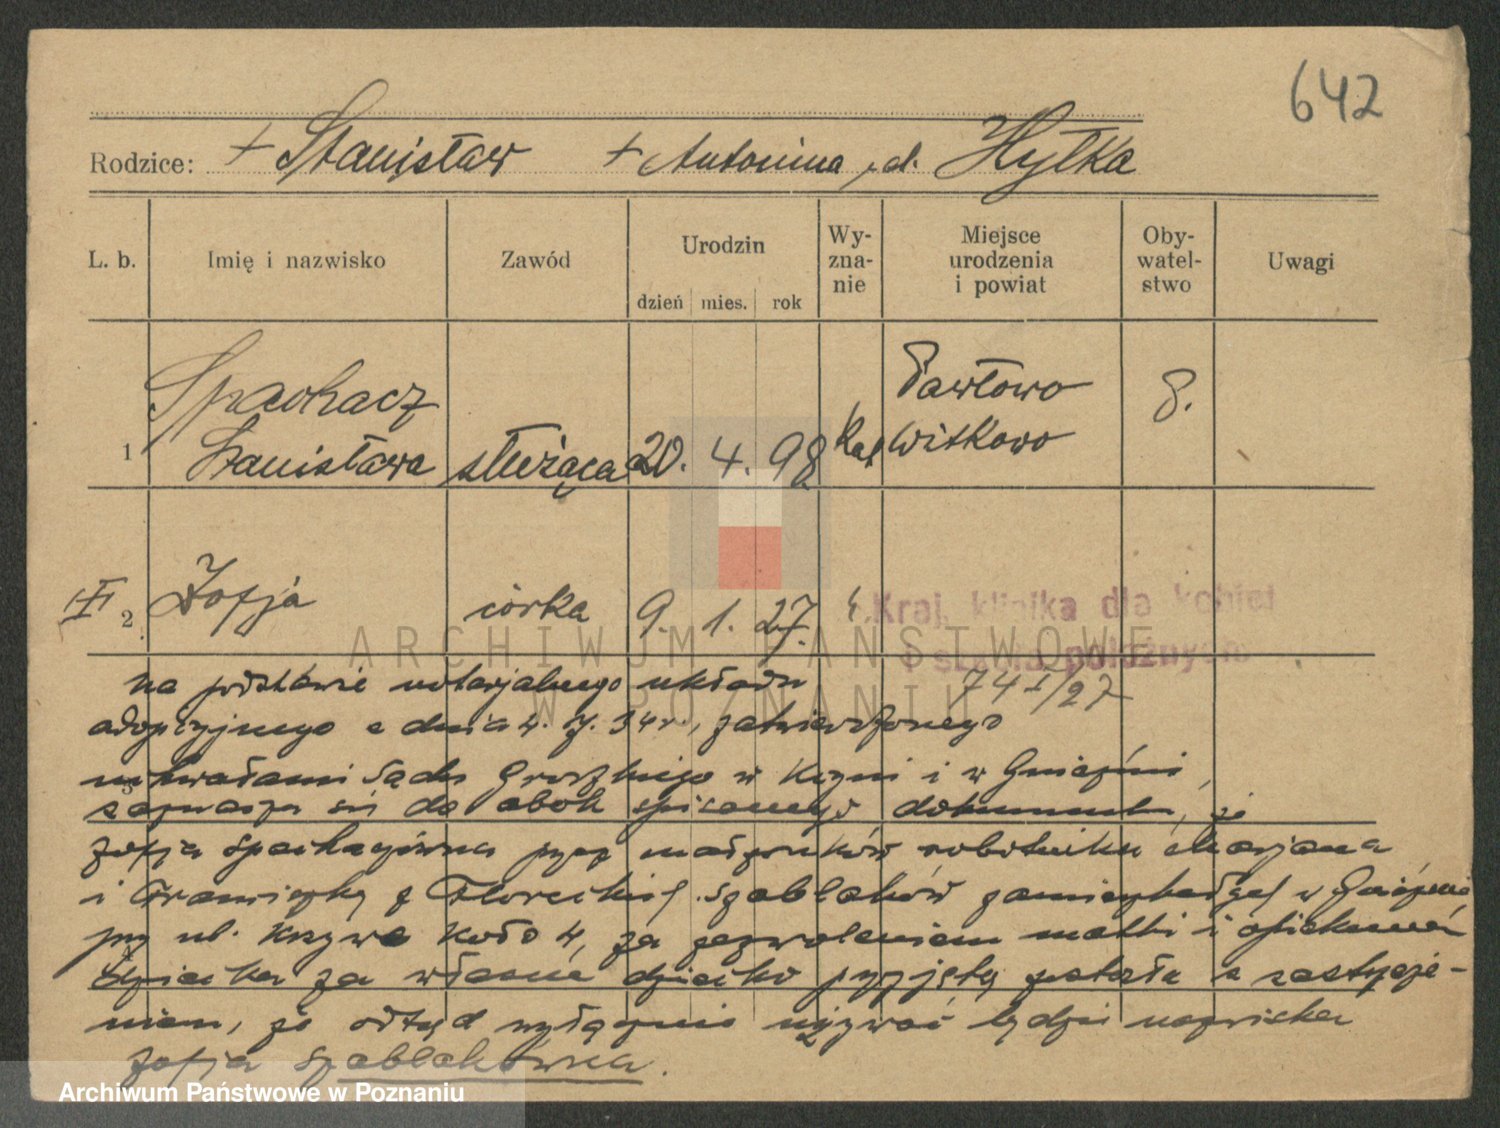 642
Rodzice: + Stanisław + Antonina z d. Hyłka
L. b. Imię i nazwisko Zawód Urodzin dzień mies. rok Wy-zna-nie Miejsce urodzenia i powiat Oby-watel-stwo Uwagi
Spachacz Pawłowo P.
1 Stanisława służąca 20. 4. 98. kat Witkowo
2 Zofja córka 9. 1. 27. Kraj. klinika dla kobiet
i szkoła położnych
741/27
na podstawie notarjalnego układu
adopcyjnego z dnia 4. 7. 34 r., zatwierdzonego
uchwałami Sądu Grodzkiego w Kcyni i w Gnieźnie,
zaznacza się do obok spisanego dokumentu, że
Zofja Spachaczówna przez małżonków robotnika Marjana
i Franciszkę z Floreckich Szablaków zamieszkałych w Gnieźnie
przy ul. Krzywe Koło 4, za zezwoleniem matki i opiekuna
dziecka za własne dziecko przyjętą została z zastrzeże-
niem, że odtąd wyłącznie używać będzie nazwiska
Zofja Szablakówna.
ARCHIWUM PAŃSTWOWE
W POZNANIU
Archiwum Państwowe w Poznaniu